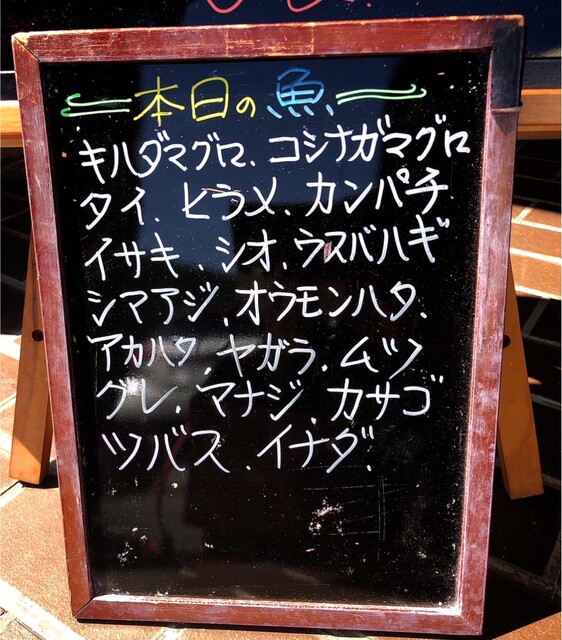 本日の魚
キハダマグロ、コシナガマグロ
タイ、ヒラメ、カンパチ
イサキ、シオ、ウスバハギ
シマアジ、オウモンハタ、
アカハタ、ヤガラ、ムツ
グレ、マナジ、カサゴ
ツバス、イナダ